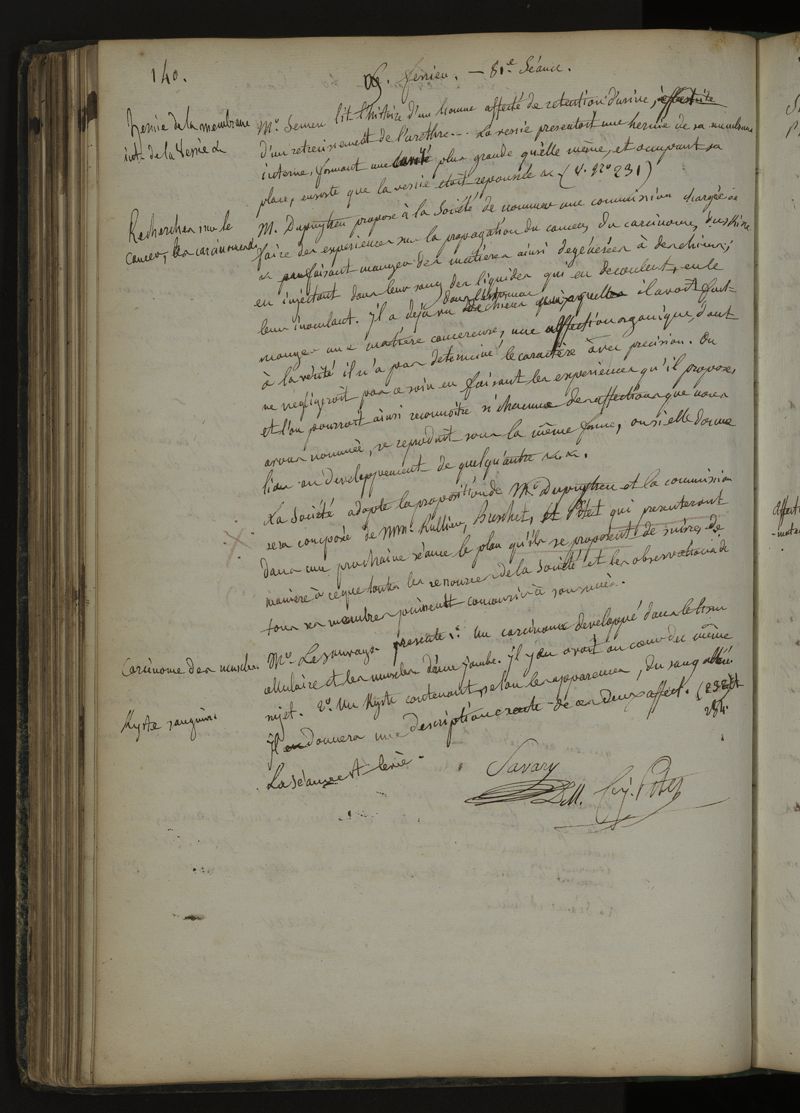 140.
fevrier. — 81e Séance.
Hernie de la membrane
int. de la Vessie &
Mr. Lemen lit l'histoire d'un homme affecté de retention d'urine,
d'un retrecissement de l'urèthre... La vessie presentoit une hernie de sa membrane
interne, formant une cavité plus grande qu'elle même, et occupant sa
place, ensorte que la vessie étoit repoussée && (V. No 231)
Recherches sur le
cancer, les carcinomes &
M. Dupuytren propose à la Société de nommer une commission chargée de
faire des experiences sur la propagation du cancer, du carcinome, du
&& faisant manger des matieres ainsi degénérées à des chiens;
en injectant dans leur sang des liquides qui en decoulent, en le
leur inoculant. Il a dejà vu dans l'estomac de chiens auxquels il avoit fait
manger une matière cancereuse, une affection organique, dont
à la vérité il n'a pas determiné le caractère avec precision. On
ne negligeroit pas ce soin en faisant les experiences qu'il propose,
et l'on pourroit ainsi reconnoître si chacune des affections que nous
avons nommées, se reproduit sous la même forme, ou si elle donne
lieu au developpement de quelqu'autre &&.
La Société adopte la proposition de Mr. Dupuytren et la commission
sera composée de MM. Rullier, Breschet, et Potet qui presenteront
dans une prochaine séance le plan qu'ils se proposent de suivre, de
manière à ce que toutes les resources de la Société et les observations de
tous ses membres puissent concourir à son succès.
Carcinome des muscles
Mr. Lesauvage presente 1o. un carcinome developpé dans le tissu
cellulaire et les muscles d'une jambe. Il y en avoit au cœur du même
Kyste sanguin
sujet. 2o. Un Kyste contenant, selon les apparences, du sang
Il en donnera une description exacte de ces deux affect. (232) et
234.
La séance est levée.
Savary
D.M. Eug. Potet